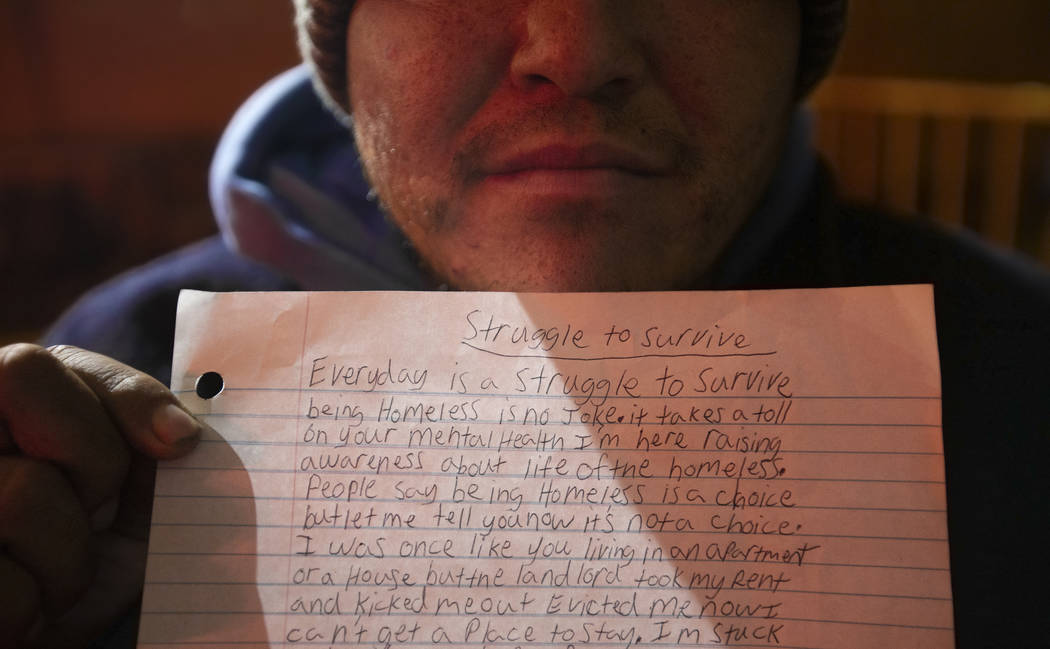 Struggle to survive
Everyday is a struggle to survive
being Homeless is no Joke. it takes a toll
on your mental Health I'm here raising
awareness about life of the homeless.
People say being Homeless is a choice
but let me tell you now it's not a choice.
I was once like you living in an apartment
or a House but the land lord took my Rent
and kicked me out Evicted me now I
can't get a Place to stay. I'm stuck